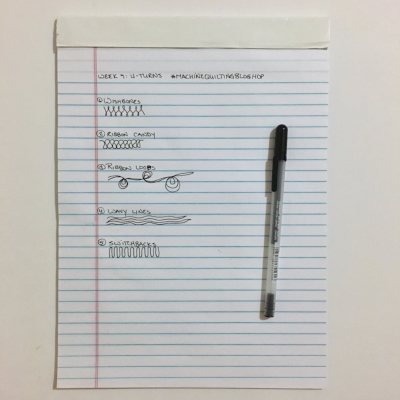 WEEK 7: U-TURNS #MACHINEQUILTINGBLOGHOP
① WISHBONES
② RIBBON CANDY
③ RIBBON LOOPS
④ WAVY LINES
⑤ SWITCHBACKS